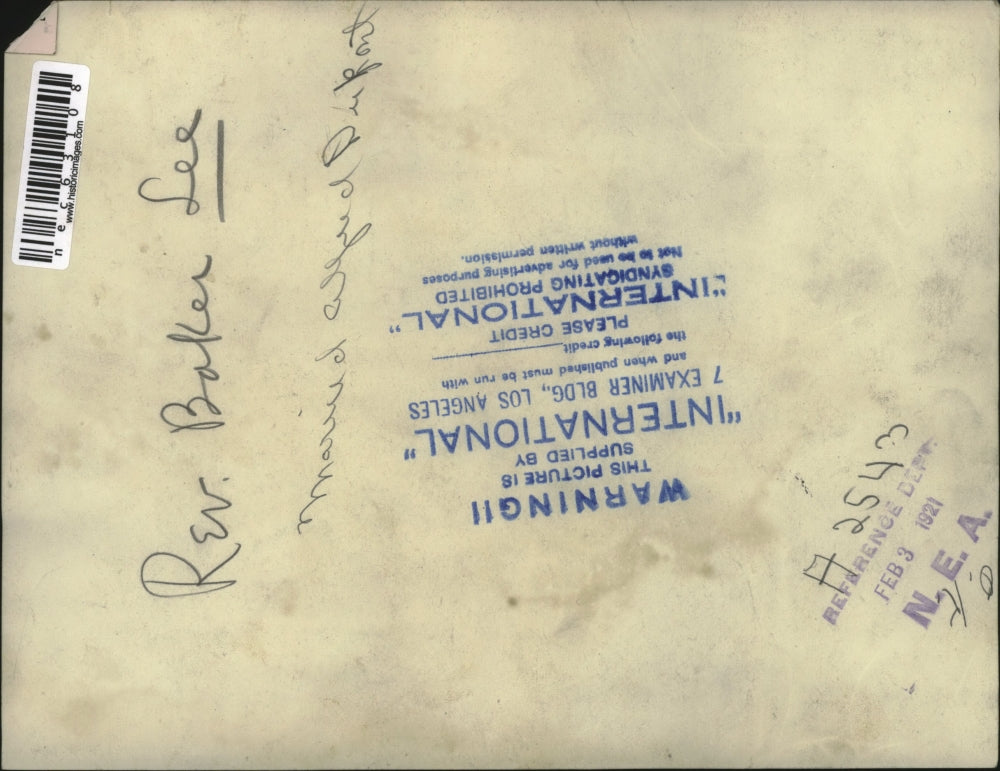 Rev. Baker Lee
married Alfred Dupont
WARNING!!
THIS PICTURE IS
SUPPLIED BY
"INTERNATIONAL"
7 EXAMINER BLDG., LOS ANGELES
and when published must be run with
the following credit
PLEASE CREDIT
"INTERNATIONAL"
SYNDICATING PROHIBITED
Not to be used for advertising purposes
without written permission.
# 2543
REFERENCE DEPT.
FEB 3 1921
N. E. A.
nec63108
www.historicimages.com